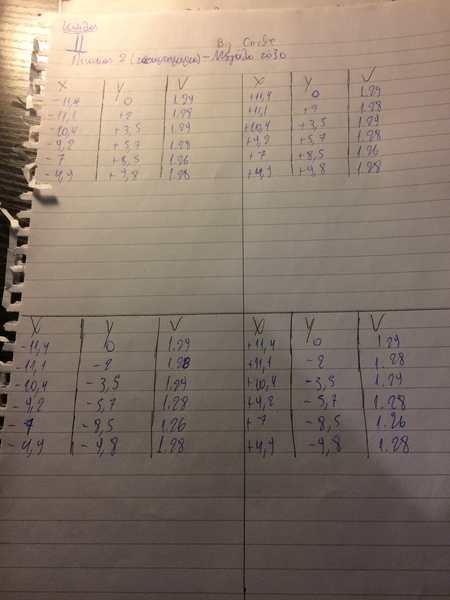 II
By
X Y V X Y V
-11,4 0 1.29 +11,4 0 1.29
-11,1 +2 1.28 +11,1 +2 1.28
-10,4 +3,5 1.29 +10,4 +3,5 1.29
-9,2 +5,7 1.28 +9,2 +5,7 1.28
-7 +8,5 1.26 +7 +8,5 1.26
-4,9 +9,8 1.28 +4,9 +9,8 1.28
X Y V X Y V
-11,4 0 1.29 +11,4 0 1.29
-11,1 -2 1.28 +11,1 -2 1.28
-10,4 -3,5 1.29 +10,4 -3,5 1.29
-9,2 -5,7 1.28 +9,2 -5,7 1.28
-7 -8,5 1.26 +7 -8,5 1.26
-4,9 -9,8 1.28 +4,9 -9,8 1.28